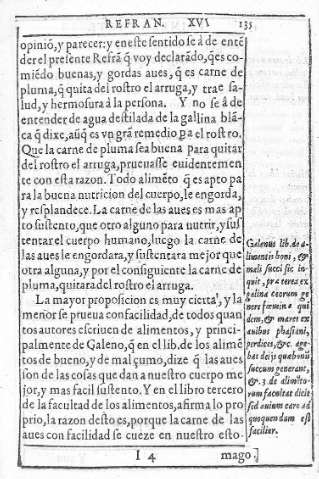 REFRAN. XVI 135
opinió, y parecer: y eneste sentido se á de enté
der el presente Refrã q̃ voy declarãdo, q̃es co-
miédo buenas, y gordas aues, q̃ es carne de
pluma, q̃ quita del rostro el arruga, y trae sa-
lud, y hermosura à la persona. Y no se á de
entender de agua destilada de la gallina blá-
ca q̃ dixe, aũq̃ es vn grã remedio pa el rostro.
Que la carne de pluma sea buena para quitar
del rostro el arruga, prueuasse euidentemen
te con esta razon. Todo aliméto q̃ es apto pa
ra la buena nutricion del cuerpo, le engorda,
y resplandece. La carne de las aues es mas ap
to sustento, que otro alguno para nutrir, y sus
tentar el cuerpo humano, luego la carne de
las aues le engordara, y sustentara mejor que
otra alguna, y por el consiguiente la carne de
pluma, quitara del rostro el arruga.
La mayor proposicion es muy cierta, y la
menor se prueua con facilidad, de todos quan
tos autores escriuen de alimentos, y princi-
palmente de Galeno, q̃ en el lib. de los alimé
tos de bueno, y de mal çumo, dize q̃ las aues
son de las cosas que dan a nuestro cuerpo me
jor, y mas facil sustento. Y en el libro tercero
de la facultad de los alimentos, afirma lo pro
prio, la razon desto es, porque la carne de las
aues con facilidad se cueze en nuestro esto-
Galenus lib. de a-
limentis boni, &
mali succi sic in-
quit, præterea ex
perdices, &c.
succum generant,
& 3. de alimẽto-
rum facultat
sed auium caro ad
facilior.
I 4 mago.